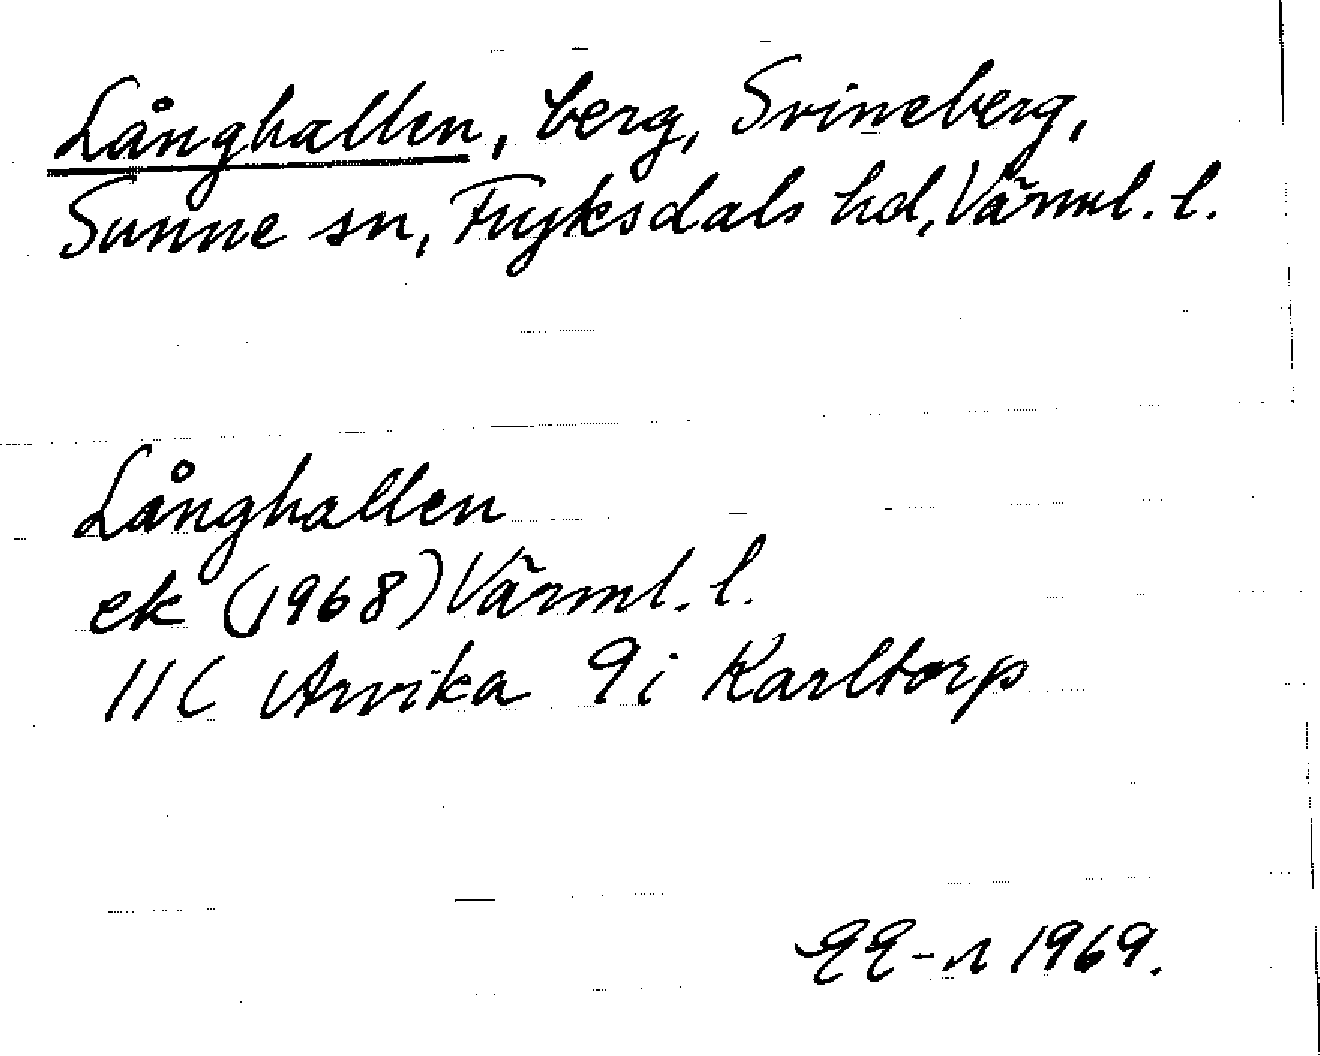 Långhallen, berg, Svineberg,
Sunne sn, Fryksdals hd, Värml. l.
Långhallen
ek (1968) Värml. l.
11C Arvika 9i Karltorp
EE-n 1969.